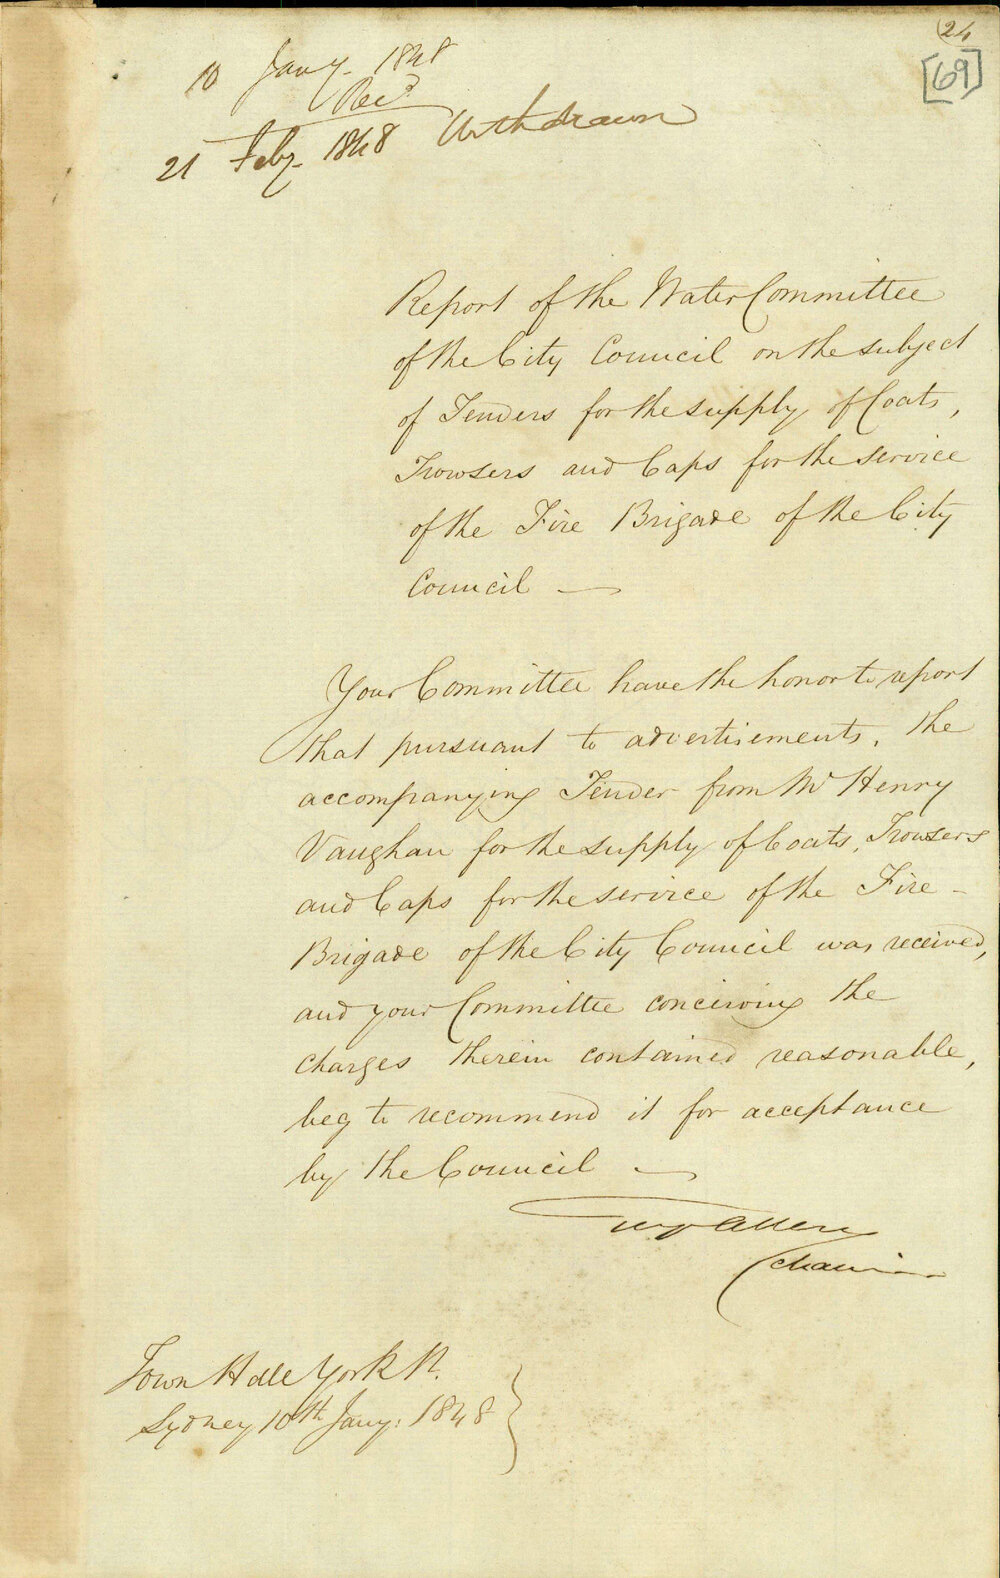 24
[69]
10 Jany. 1848
Recd.
21 Feby. 1848 Withdrawn
Report of the Water Committee
of the City Council on the subject
of Tenders for the supply of Coats,
Trowsers and Caps for the service
of the Fire Brigade of the City
Council —
Your Committee have the honor to report
that pursuant to advertisements, the
accompanying Tender from Mr Henry
Vaughan for the supply of Coats, Trowsers
and Caps for the service of the Fire -
Brigade of the City Council was received,
and your Committee conceiving the
charges therein contained reasonable,
beg to recommend it for acceptance
by the Council —
Allen
Chairman
Town Hall York St.
Sydney 10th Jany: 1848